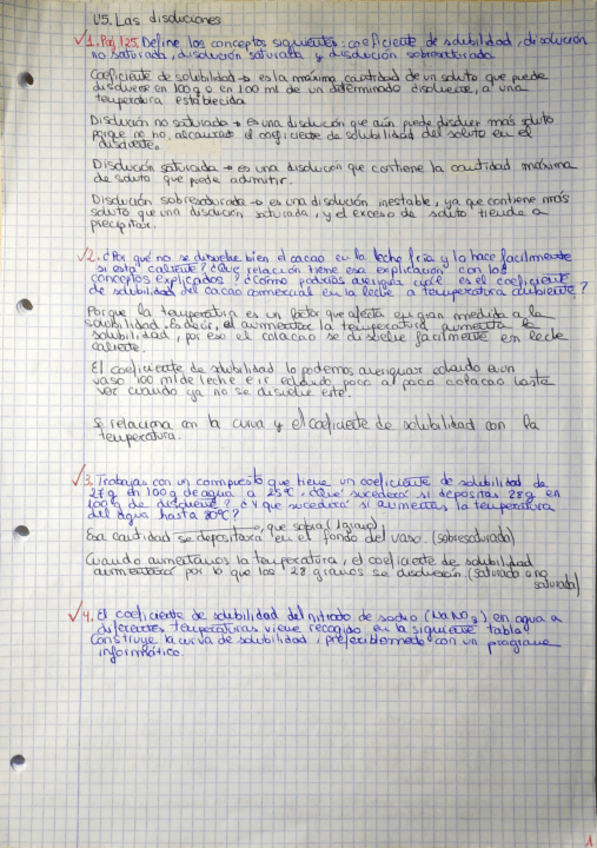 U5. Las disoluciones
√1. Pag 125. Define los conceptos siguientes: coeficiente de solubilidad, disolución
no saturada, disolución saturada y disolución sobresaturada
Coeficiente de solubilidad → es la máxima cantidad de un soluto que puede
disolverse en 100 g o en 100 ml de un determinado disolvente, a una
temperatura establecida
Disolución no saturada → es una disolución que aún puede disolver más soluto
porque no ha alcanzado el coeficiente de solubilidad del soluto en el
disolvente.
Disolución saturada → es una disolución que contiene la cantidad máxima
de soluto que puede admitir.
Disolución sobresaturada → es una disolución inestable, ya que contiene más
soluto que una disolución saturada, y el exceso de soluto tiende a
precipitar.
√2. ¿Por qué no se disuelve bien el cacao en la leche fría y lo hace facilmente
si está caliente? ¿Qué relación tiene esa explicación con los
conceptos explicados? ¿Cómo podrías averiguar cuál es el coeficiente
de solubilidad del cacao comercial en la leche a temperatura ambiente?
Porque la temperatura es un factor que afecta en gran medida a la
solubilidad. Es decir, al aumentar la temperatura aumenta la
solubilidad, por eso el colacao se disuelve facilmente en leche
caliente.
El coeficiente de solubilidad lo podemos averiguar echando en un
vaso 100 ml de leche e ir echando poco a poco colacao hasta
ver cuando ya no se disuelve este.
Se relaciona con la curva y el coeficiente de solubilidad con la
temperatura.
√3. Trabajas con un compuesto que tiene un coeficiente de solubilidad de
27g en 100g de agua a 25ºC. ¿Qué sucederá si depositas 28g en
100g de disolvente? ¿Y que sucederá si aumentas la temperatura
del agua hasta 80ºC?
, que sobra (1 gramo),
Esa cantidad se depositará en el fondo del vaso. (sobresaturada)
Cuando aumentamos la temperatura, el coeficiente de solubilidad
aumentará por lo que los 28 gramos se disolverán. (saturada o no
saturada)
√4. El coeficiente de solubilidad del nitrato de sodio (NaNO3) en agua a
diferentes temperaturas viene recogido en la siguiente tabla
Construye la curva de solubilidad, preferiblemente con un programa
informático.
1